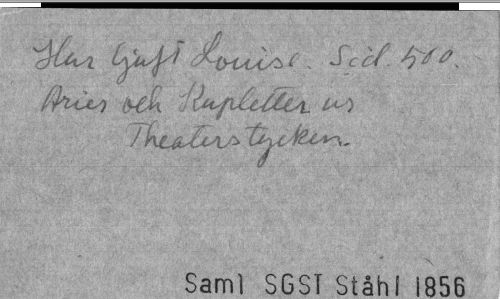 Hur ljuft Louise. Sid. 500.
Arier och Kupletter ur
Theaterstycken.
Saml SGST Ståhl 1856